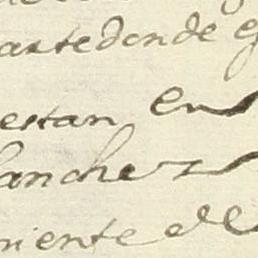 artedonde
estan en
lanchez
niente de